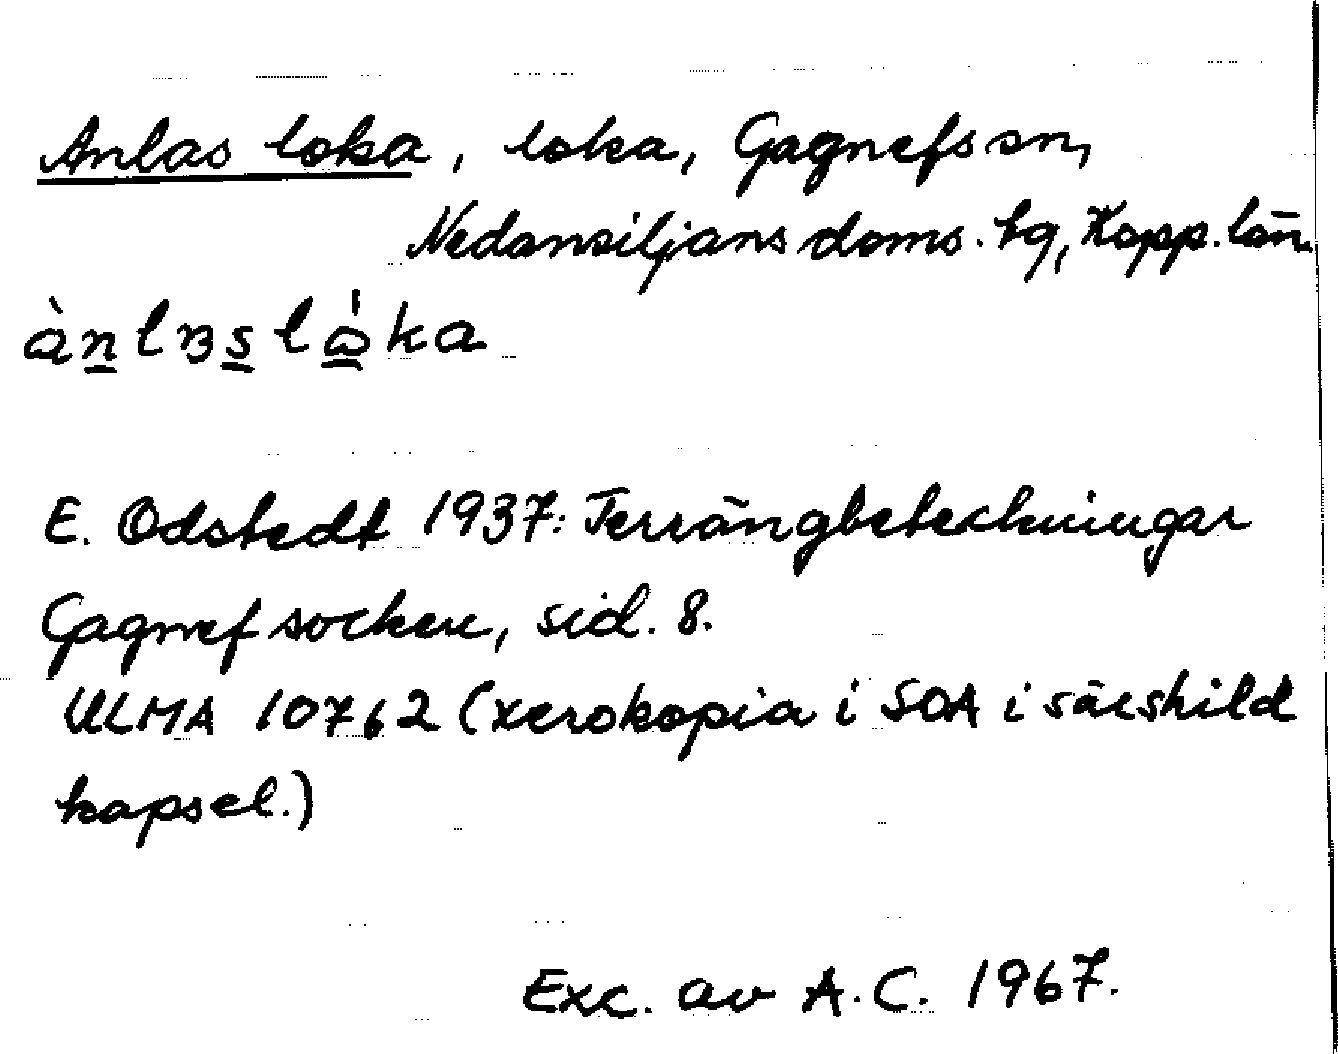 Anlas loka, loka, Gagnefs sn,
Nedansiljans doms. tg, Kopp. län.
E. Odstedt 1937: Terrängbeteckningar
Gagnef socken, sid. 8.
ULMA 10762 (xerokopia i SOA i särskild
kapsel.)
Exc. av A.C. 1967.